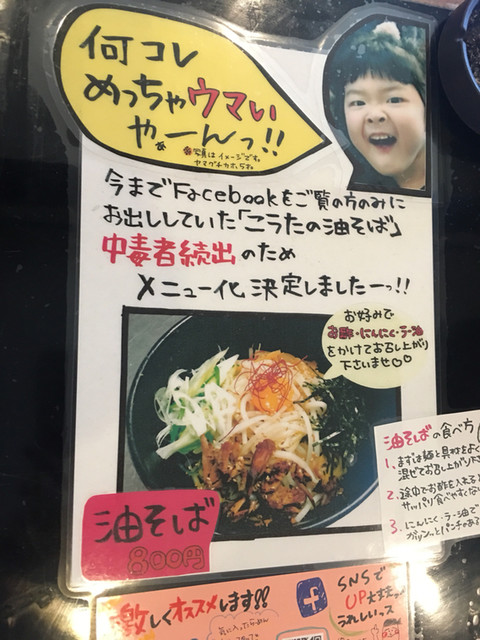 何コレ
めっちゃウマい
やぁーんっ!!
※写真はイメージです。
今までFacebookをご覧の方のみに
お出ししていた「こうたの油そば」
中毒者続出のため
メニュー化決定しましたーっ!!
お好みで
お酢・にんにく・ラー油
をかけてお召し上がり
下さいませ♡♡
油そば
800円
油そばの食べ方
1、まずは麺と具材をよく
混ぜてお召し上がり
2、途中でお酢を入れると
サッパリ食べやすくな
3、にんにく・ラー油で
ガツンッとパンチのある
激しくオススメします!!
f
SNSで
UP大丈
うれしいっス